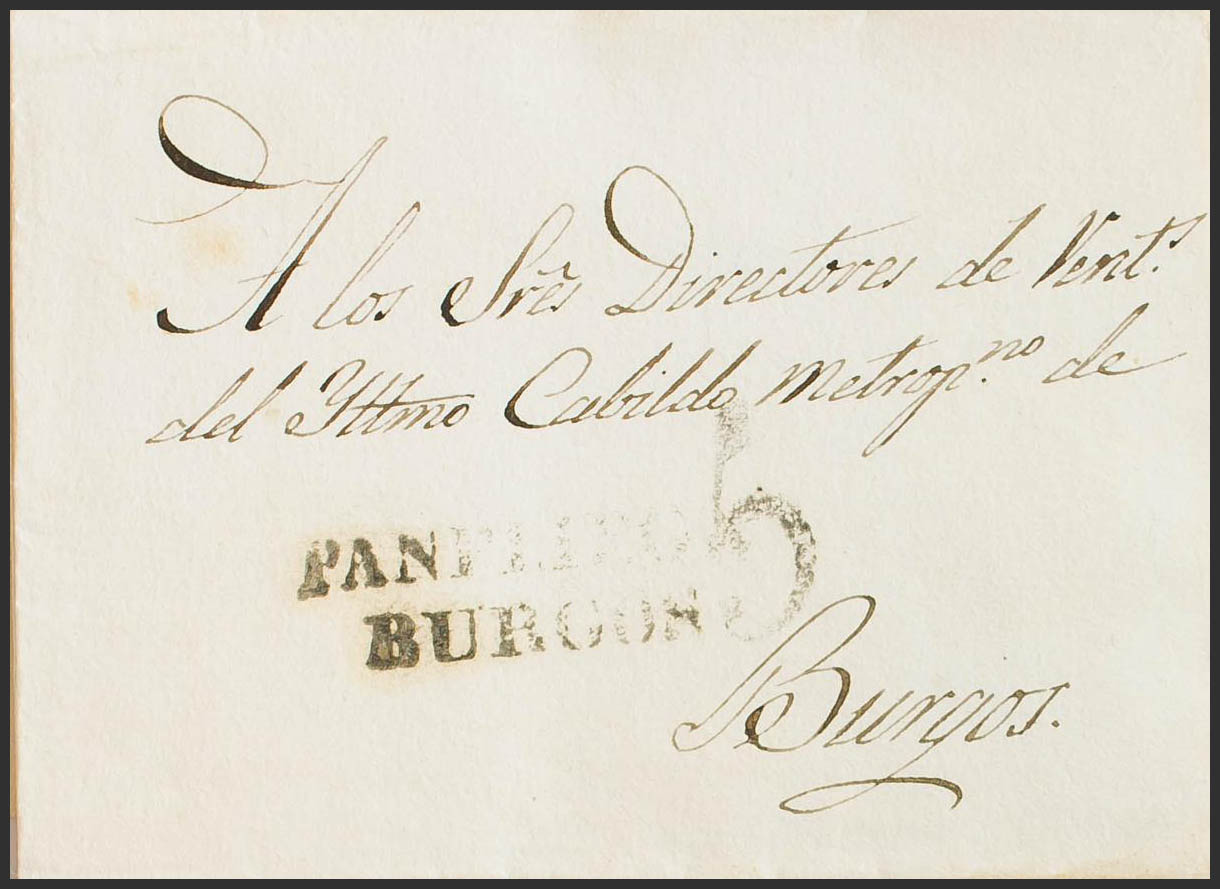 A los Srẽs Directores de Vent.s
del Yttmo Cabildo Metrop.no de
5
PANPLIEGA
BURGOS
Burgos.